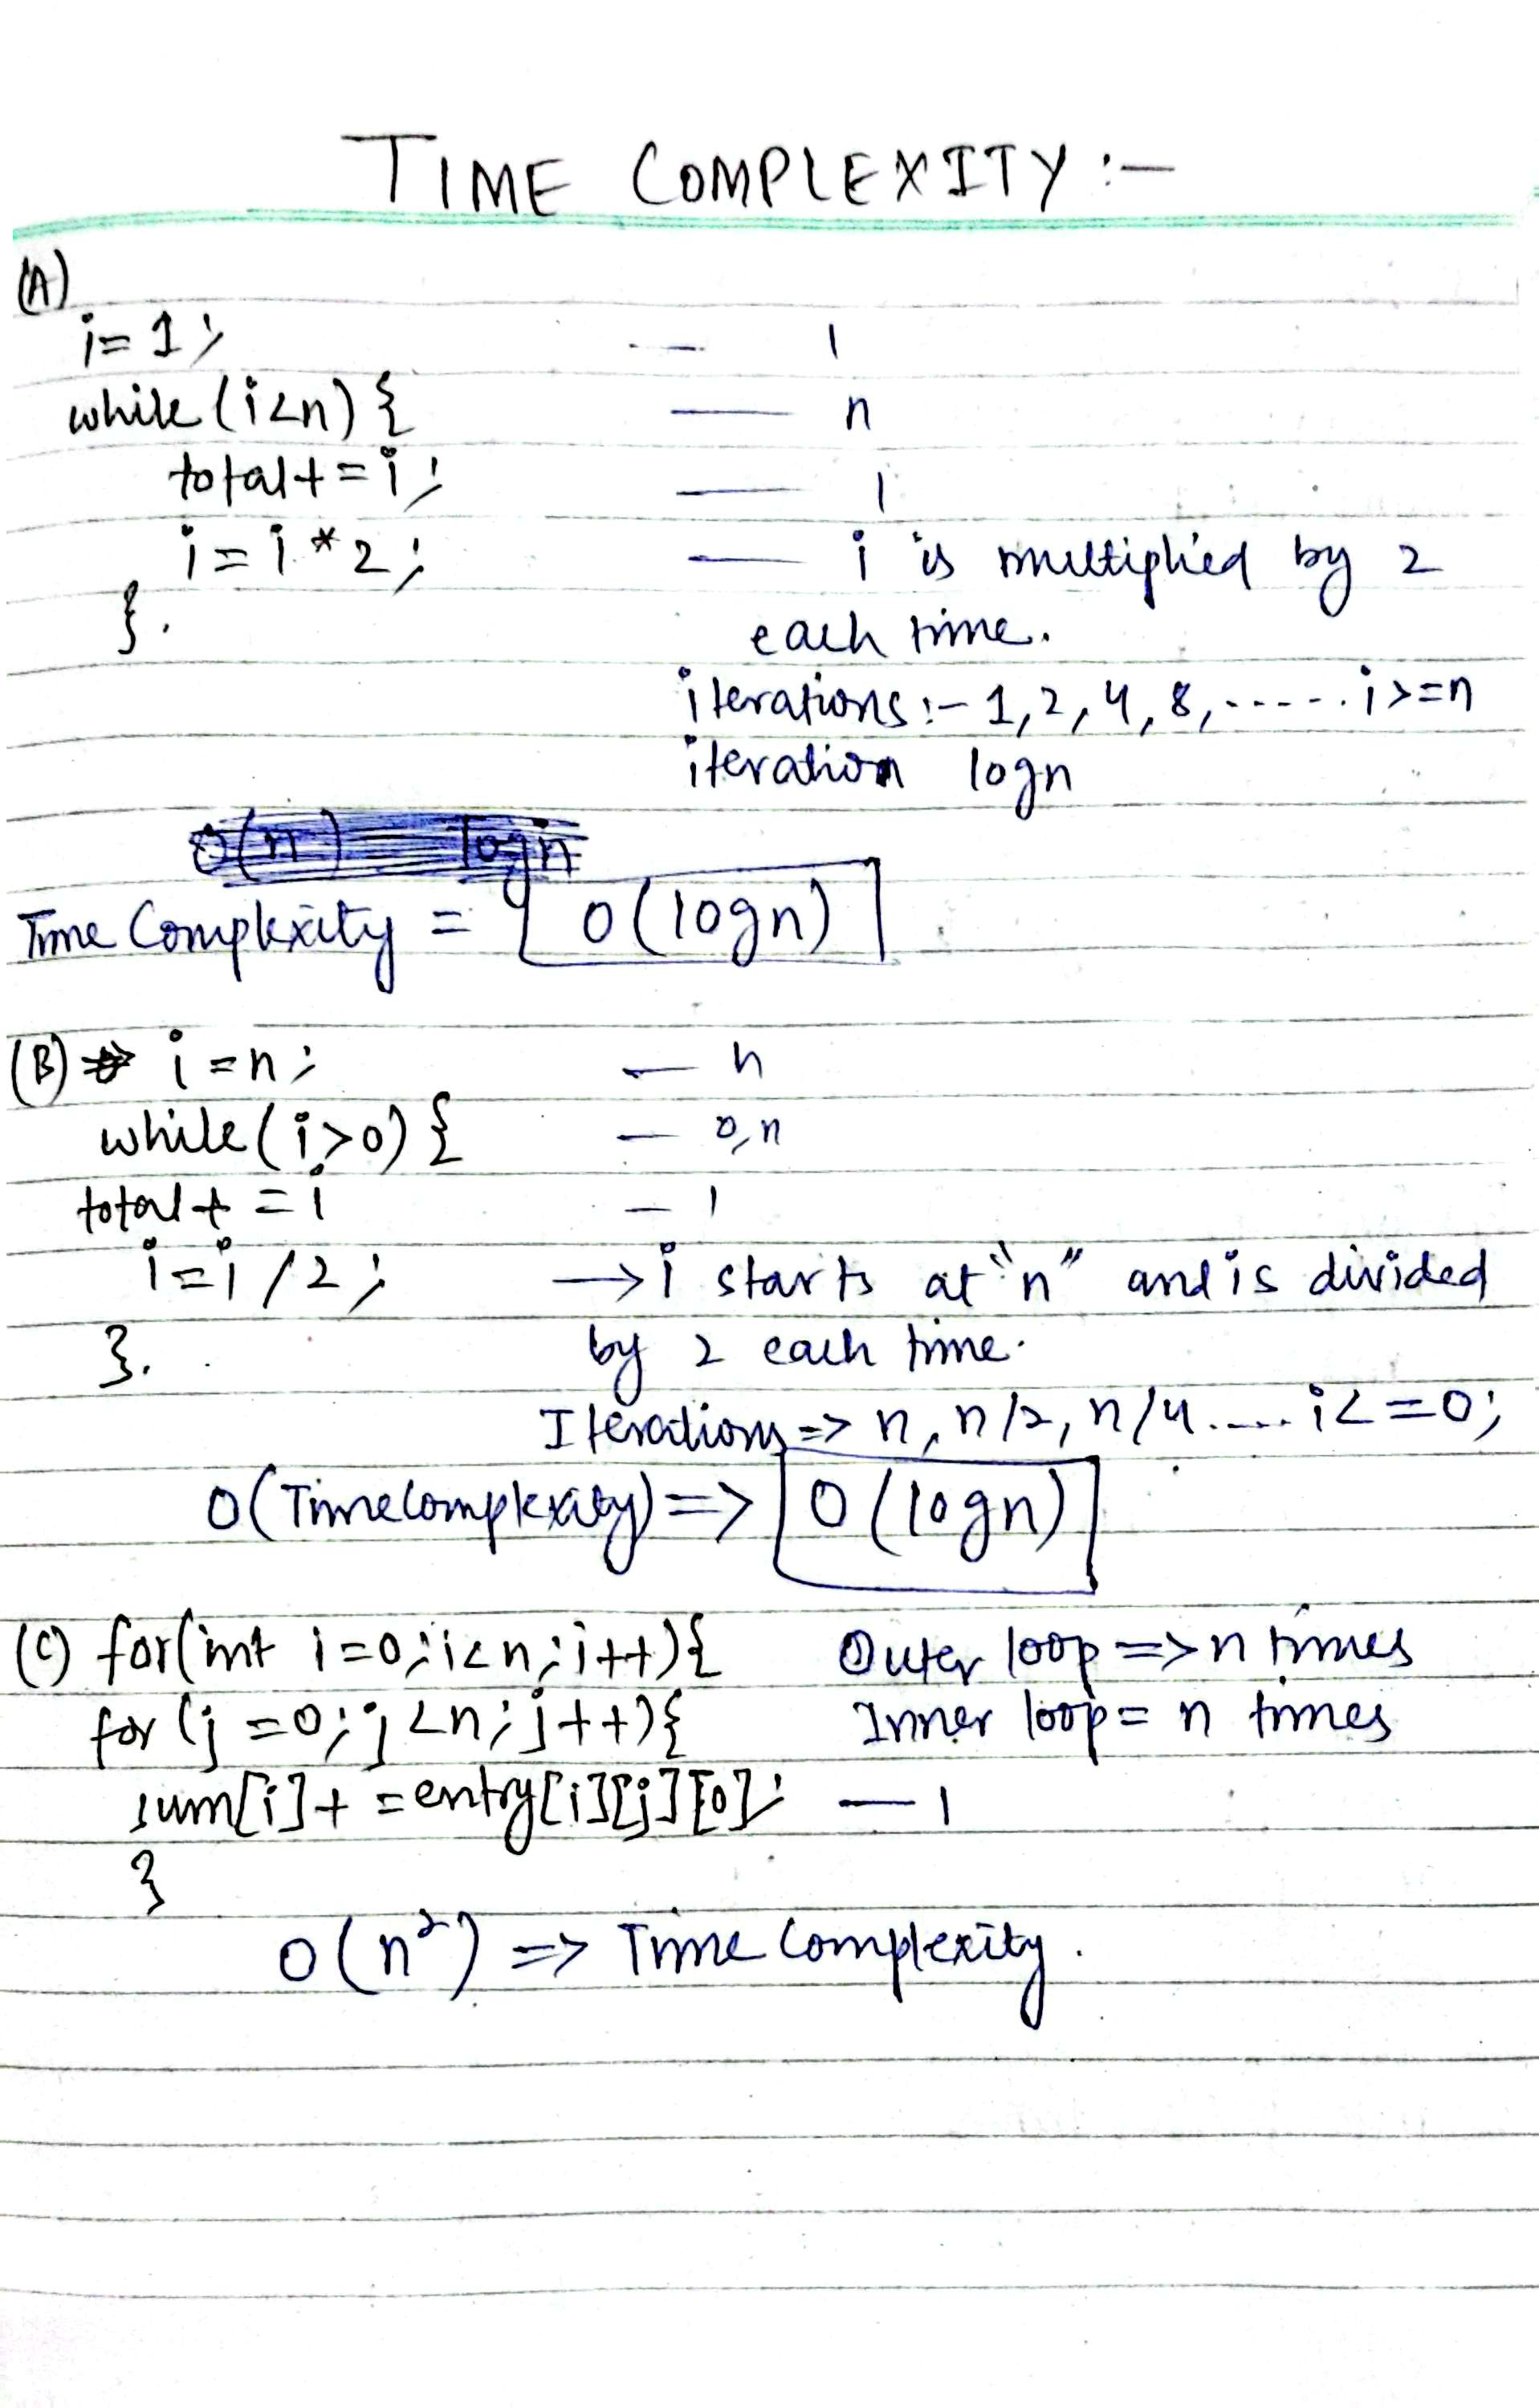 TIME COMPLEXITY :-
(A)
i = 1; — 1
while (i<n) { — n
total+ = i; — 1
i = i * 2; — i is multiplied by 2
}. each time.
iterations :- 1, 2, 4, 8, ...... i >=n
iteration logn
O(n) logn
Time Complexity = O(logn)
(B) i = n; — n
while ( i>0) { — 0,n
total+ = i — 1
i = i / 2; → i starts at "n" and is divided
}. by 2 each time.
Iterations => n, n/2, n/4..... i< =0;
O(Time Complexity) => O(logn)
(C) for(int i=0; i<n; i++){ Outer loop => n times
for (j =0; j <n; j++){ Inner loop = n times
sum[i]+ =entry[i][j][0]; — 1
}
O(n²) => Time Complexity.